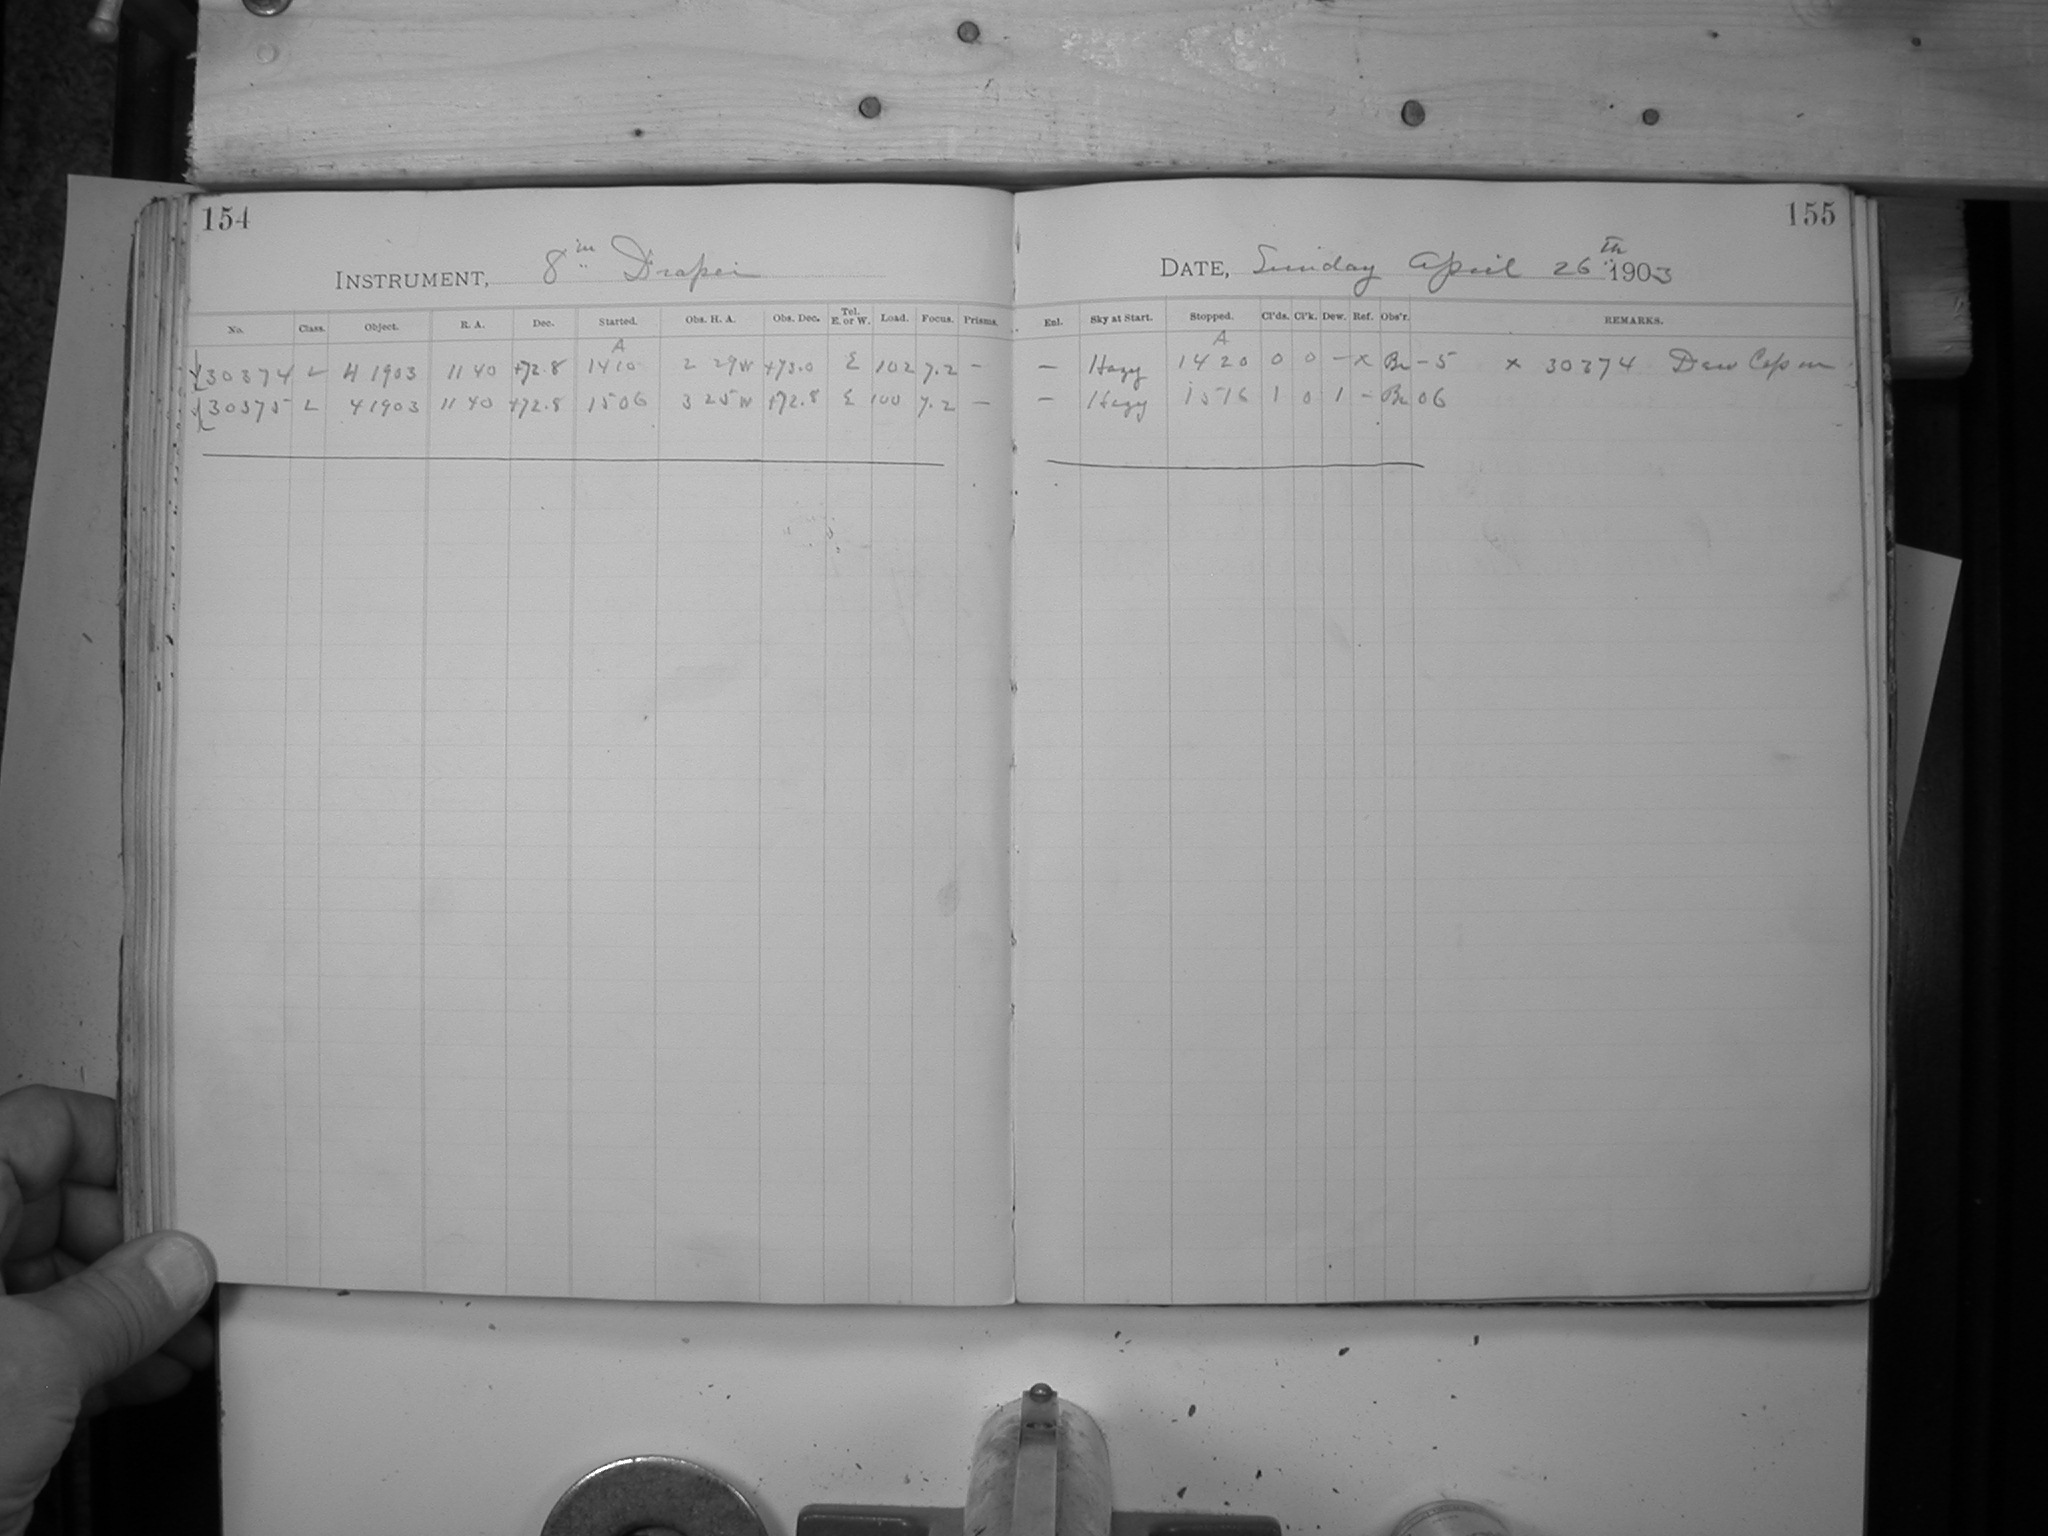 154
INSTRUMENT, 8 in Draper
No. Class. Object. R. A. Dec. Started. Obs. H. A. Obs. Dec. Tel. E. or W. Load. Focus. Prisms.
A
30374 L 4 1903 11 40 +72.8 1410 2 29 W +73.0 E 102 7.2 —
30375 L 4 1903 11 40 +72.8 1506 3 25 W +72.8 E 100 7.2 —
155
DATE, Sunday April 26th 1903
Enl. Sky at Start. Stopped. Cl'ds. Cl'k. Dew. Ref. Obs'r. REMARKS.
A
— Hazy 1420 0 0 — x Br — 5 x 30374 Dew Cap on
— Hazy 1516 1 0 1 — Br 06